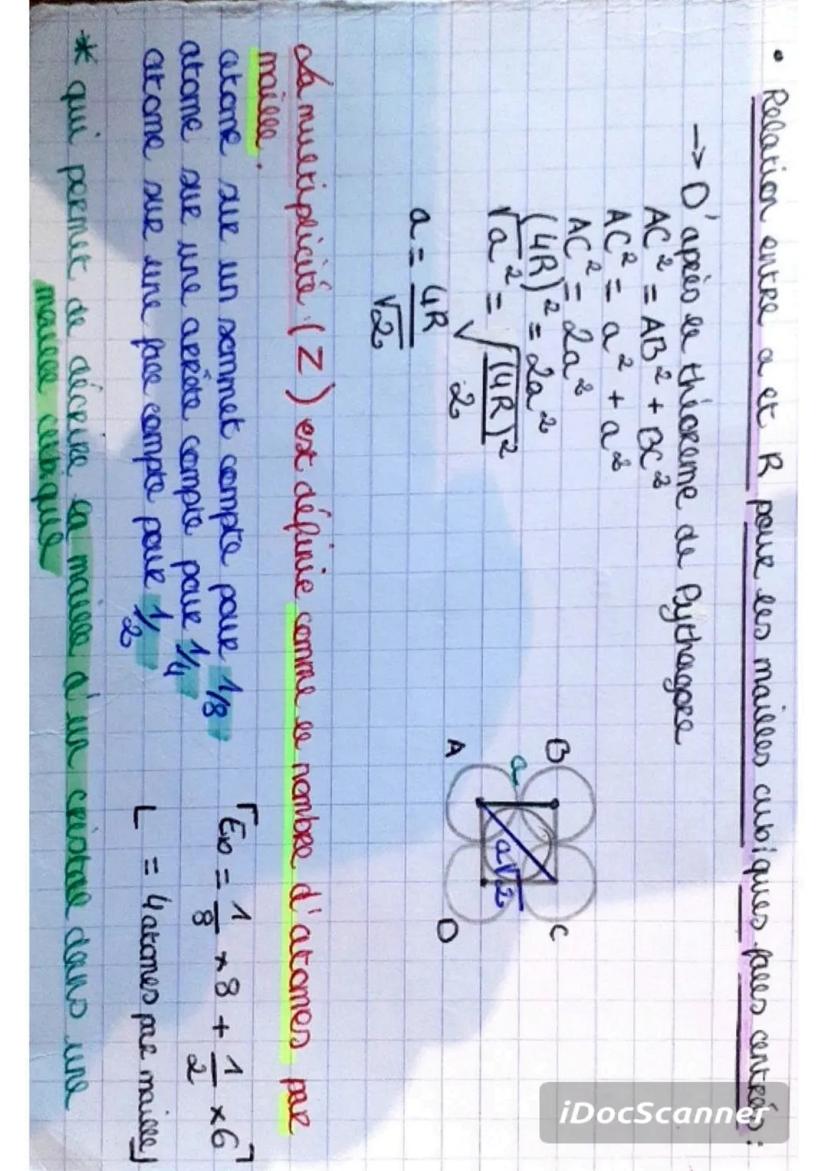 • Relation entre a et R pour les mailles cubiques faces centrés :
→ D'après le théorème de Pythagore
AC² = AB² + BC²
AC² = a² + a²
AC² = 2a²
(4R)² = 2a²
√a² = √(4R)²/2
a = 4R/√2
B
C
a
a√2
A
D
La multiplicité (Z) est définie comme le nombre d'atomes par
maille.
atome sur un sommet compte pour 1/8
atome sur une arrête compte pour 1/4
atome sur une face compte pour 1/2
Ex = 1/8 × 8 + 1/2 × 6
= 4 atomes par maille
* qui permet de décrire la maille d'un cristal dans une
maille cubique
iDocScanner